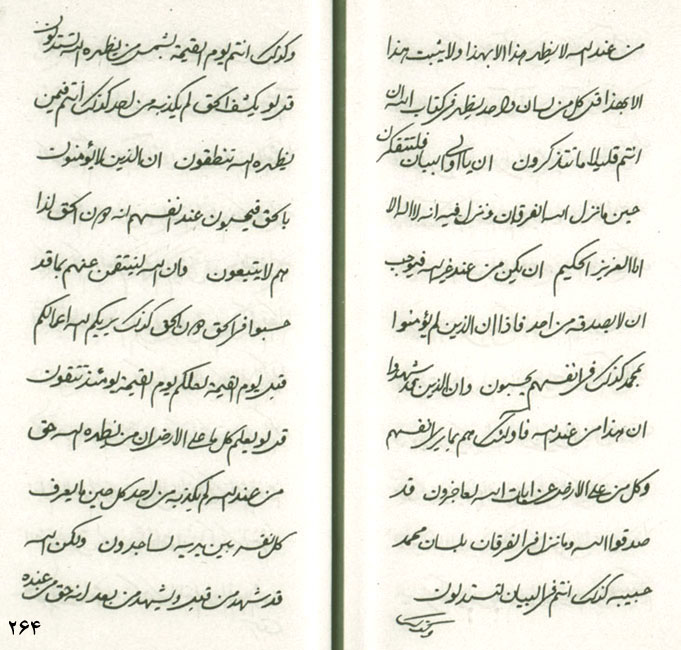 من عند الله لا يظهر هذا الا بهذا ولا يثبت هذا
الا بهذا قل كل من لسان واحد يظهر في كتاب الله ان
انتم قليلا ما تتذكرون ان يا اولى البيان فلتتفكرن
حين ما نزل الله الفرقان ونزل فيه انه لا اله الا
انا العزيز الحكيم ان يكن من عند غير الله فيوجب
ان لا يصدقه من احد فاذا ان الذين لم يؤمنوا
بمحمد كذلك في انفسهم يحسبون وان الذين بمحمد شهدوا
ان هذا من عند الله فاولئك هم بما يرى انفسهم
وكل من على الارض عن ايات الله لعاجزون قد
صدقوا الله وما نزل في الفرقان بلسان محمد
حبيبه كذلك انتم في البيان لتستدلون
وكذلك
وكذلك انتم يوم القيمة بشمس من يظهره الله تستدلون
قل لو يكشف الحق لم يكذبه من احد كذلك انتم فيمن
يظهره الله تنطقون ان الذين لا يؤمنون
بالحق فيحسبون عند انفسهم انه دون الحق لذا
هم لا يتبعون وان الله لينتقمن عنهم بما قد
حسبوا في الحق دون الحق كذلك يريكم الله اعمالكم
قبل يوم القيمة لعلكم يوم القيمة يومئذ تتقون
قل لو يعلم كل ما على الارض ان من يظهره الله حق
من عند الله لم يكذبه من احد كل حين ما يعرف
كل نفسه بين يديه لساجدون ولكن الله
قد شهد من قبل ويشهد من بعد انه حق من عنده
۲۶۴